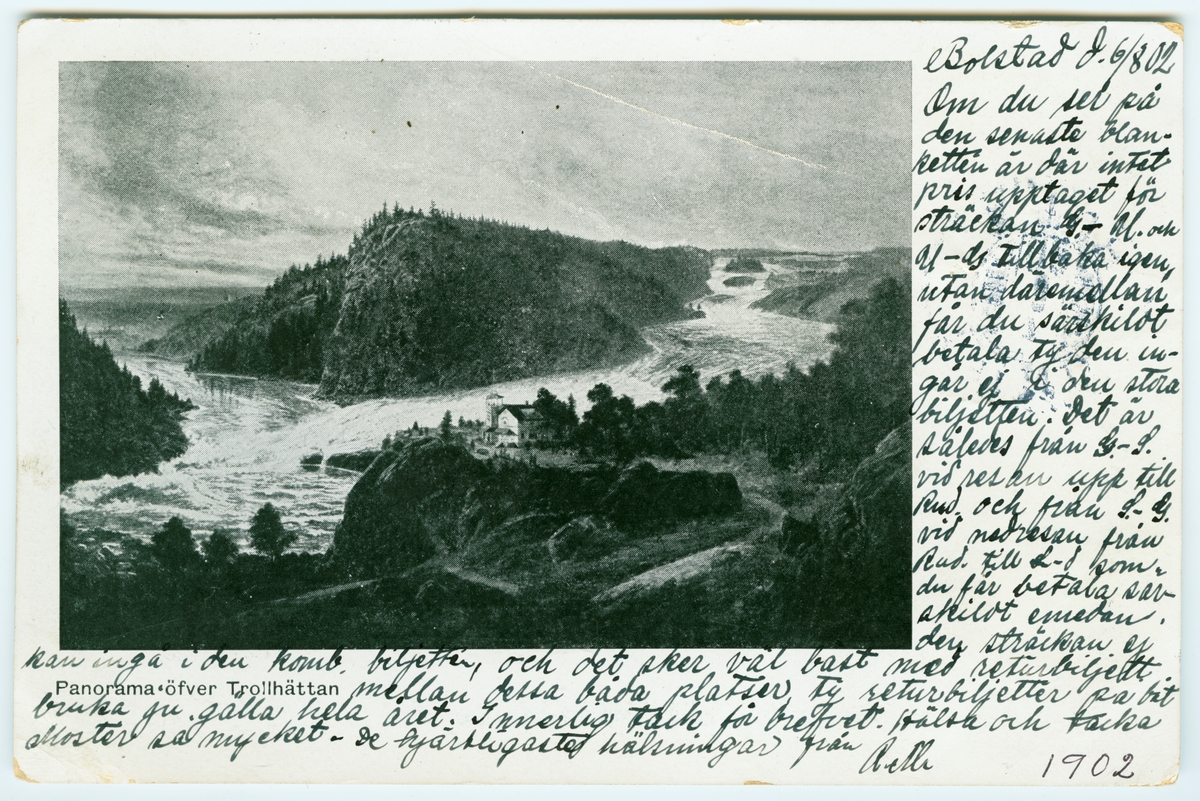 Bolstad d. 6/8 02
Om du ser på
den senaste blan-
ketten är där intet
pris upptaget för
sträckan G– U. och
U–G tillbaka igen,
utan däremellan
får du särskildt
betala ty den in-
går ej i den stora
biljetten. Det är
således från G.–L.
vid resan upp till
Rud. och från L.–G.
vid nedresan från
Rud. till L–d som
du får betala sär-
skildt emedan
den sträckan ej
kan ingå i den komb. biljetten, och det sker väl bäst med returbiljett
Panorama öfver Trollhättan
mellan dessa båda platser, ty returbiljetter på båt
bruka ju gälla hela året. Innerlig tack för brefvet. Hälsa och tacka
Moster så mycket – De hjärtligaste hälsningar från
1902